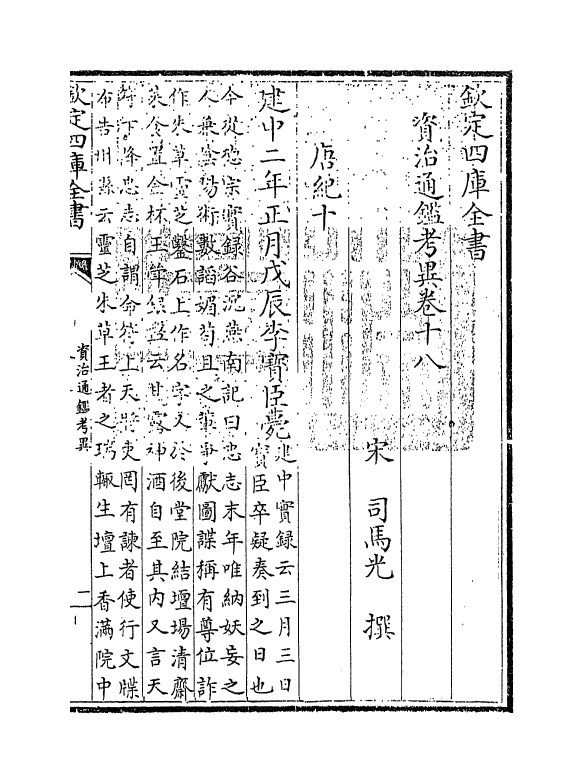 欽定四庫全書
資治通鑑考異卷十八
宋 司馬光 撰
唐紀十
建中二年正月戊辰李寶臣薨建中實録云三月三日
寶臣卒疑奏到之日也
今從德宗實録谷況燕南記曰忠志末年唯納妖妄之
人兼陰陽術數諂媚苟且之輩爭獻圖諜稱有尊位詐
作朱草靈芝鑿石上作名字又於後堂院結壇場清齋
裝令置金杯玉斝銀盤云甘露神酒自至其內又言天
符下降忠志自謂命符上天將吏罔有諫者使行文牒
布告州縣云靈芝朱草王者之瑞輙生壇上香滿院中
欽定四庫全書
資治通鑑考異
一